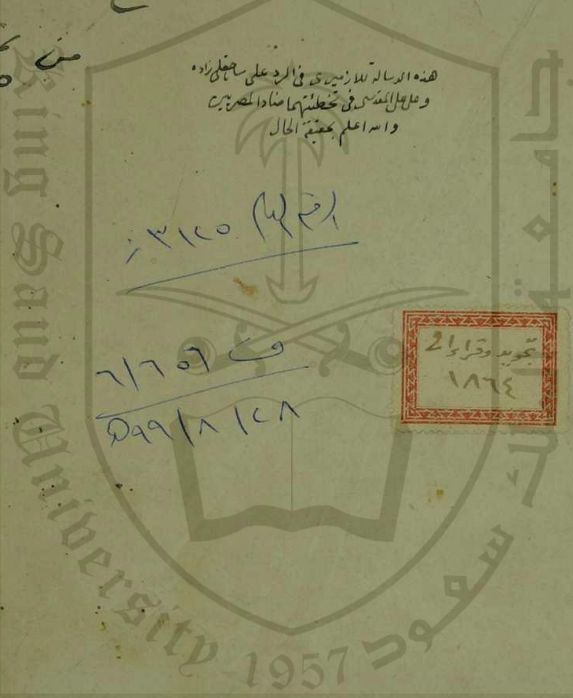 من
هذه الرسالة للازميرى فى الرد على ساجقلى زاده
وعلى على المقدسى فى تخطئتهما ضاد المصريين
والله اعلم بحقيقة الحال
الرقم العام ٣١٢٥ ز
ف ٦/٦٥٦
٩٩/٨/٢٨ﻫ
تجويد وقراءات
١٨٦٤
جامعة الملك سعود
King Saud University 1957